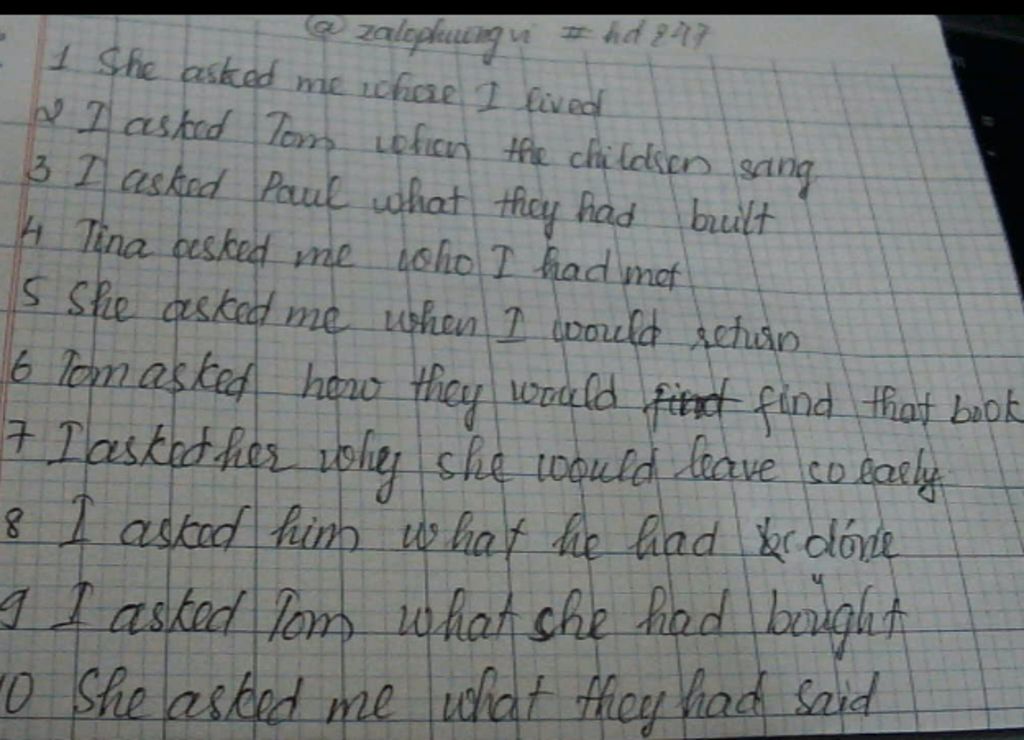 @ zalophuongvi # hd 247
1 She asked me where I lived
2 I asked Tom when the children sang
3 I asked Paul what they had built
4 Tina asked me who I had met
5 She asked me when I would return
6 Tom asked how they would find that book
7 I asked her why she would leave so early
8 I asked him what he had done
9 I asked Tom what she had bought
10 She asked me what they had said